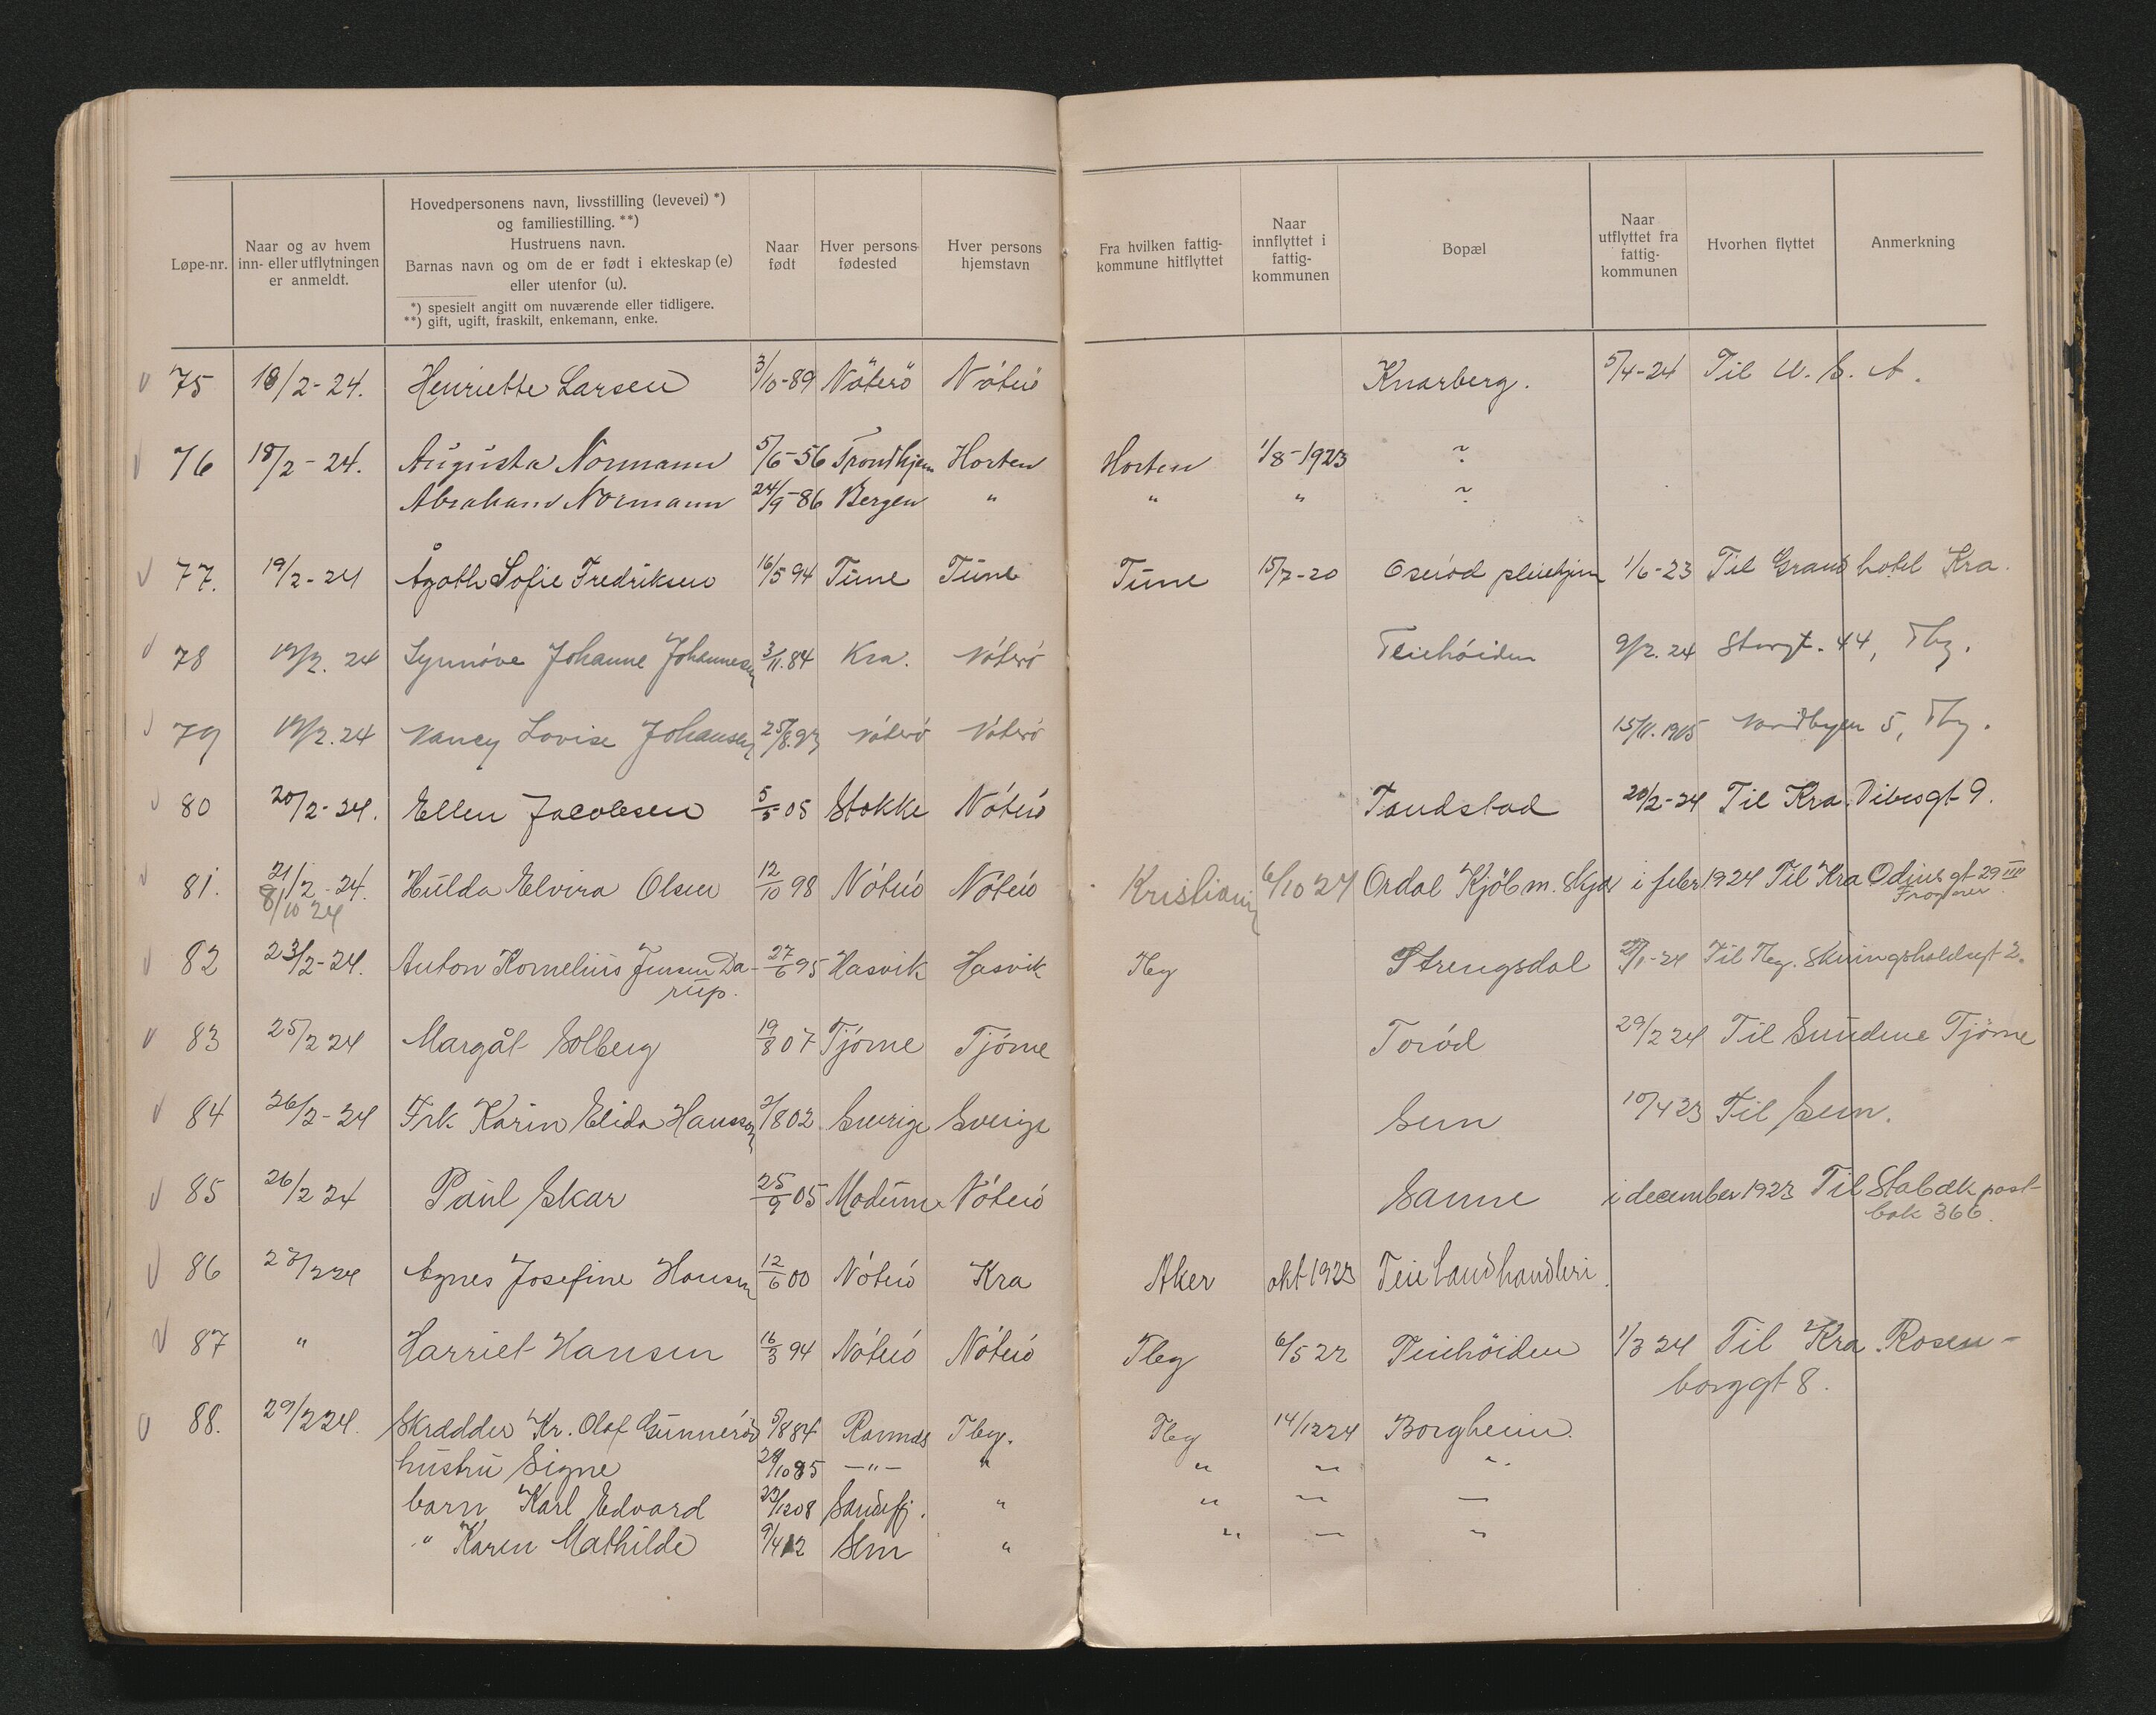 Løpe-nr.
Naar og av hvem
inn- eller utflytningen
er anmeldt.
Hovedpersonens navn, livsstilling (levevei) *)
og familiestilling. **)
Hustruens navn.
Barnas navn og om de er født i ekteskap (e)
eller utenfor (u).
*) spesielt angitt om nuværende eller tidligere.
**) gift, ugift, fraskilt, enkemann, enke.
Naar
født
Hver persons
fødested
Hver persons
hjemstavn
Fra hvilken fattig-
kommune hitflyttet
Naar
innflyttet i
fattig-
kommunen
Bopæl
Naar
utflyttet fra
fattig-
kommunen
Hvorhen flyttet
Anmerkning
75 18/2-24. Henriette Larsen 3/10-89 Nöterö Nöterö Knarberg. 5/4-24 Til U. S. A.
76 18/2-24. Augusta Normann 5/6-56 Trondhjem Horten Horten 1/8-1923 "
Abraham Normann 24/9-86 Bergen " " " "
77. 19/2-24 Ågoth Sofie Fredriksen 16/5 94 Tune Tune Tune 15/7-20 Oserød pleiehjem 1/6-23 Til Grand hotel Kra.
78 19/2.24 Synnöve Johanne Johannesen 3/11.84 Kra. Nöterö Teiehöiden 9/2.24 Storgt. 44, Tbg.
79 19/2.24 Nancy Lovise Johansen 25/8.93 Nöterö Nöterö 15/11.1905 Nordbyen 5, Tbg.
80 20/2-24. Ellen Jacobsen 5/5 05 Stokke Nöterö Tandstad 20/2-24 Til Kra. Vibesgt 9.
81. 21/2-24. Hulda Elvira Olsen 12/10 98 Nöterö Nöterö Kristiania 6/10 24 Ordal Kjöbm. Skjær i febr 1924 Til Kra Odinsgt 29 III
8/10 24 Frogner
82 23/2-24. Anton Kornelius Jensen Da- 27/6 95 Hasvik Hasvik Tbg Strengsdal Til Tbg. Skiringshaldsgt 2.
rup.
83 25/2 24 Margåt Solberg 19/8 07 Tjöme Tjöme Toröd 29/2 24 Til Sundene Tjöme
84 26/2-24 Frk. Karin Elida Hansson 2/8 02 Sverige Sverige Sem 10/4 23 Til Sem.
85 26/2 24 Paul Skar 25/9 05 Modum Nöterö Sanne i december 1923 Til Stabæk post-
bok 366.
86 27/2 24 Agnes Josefine Hansen 12/6 00 Nöterö Kra Aker okt 1923 Teie landhandleri.
87 " Harriet Hansen 16/3 94 Nöterö Nöterö Tbg 6/5 22 Teiehöiden 1/3 24 Til Kra. Rosen-
borggt 8.
88. 29/2 24. Skrædder Kr. Olaf Gunneröd 5/8 84 Ramnes Tbg. Tbg 14/12 24 Borgheim.
hustru Signe 10 85 -"- " " " "
barn Karl Edvard 23/12 08 Sandefj. " " " "
" Karen Mathilde 9/4 12 Sem " " " "